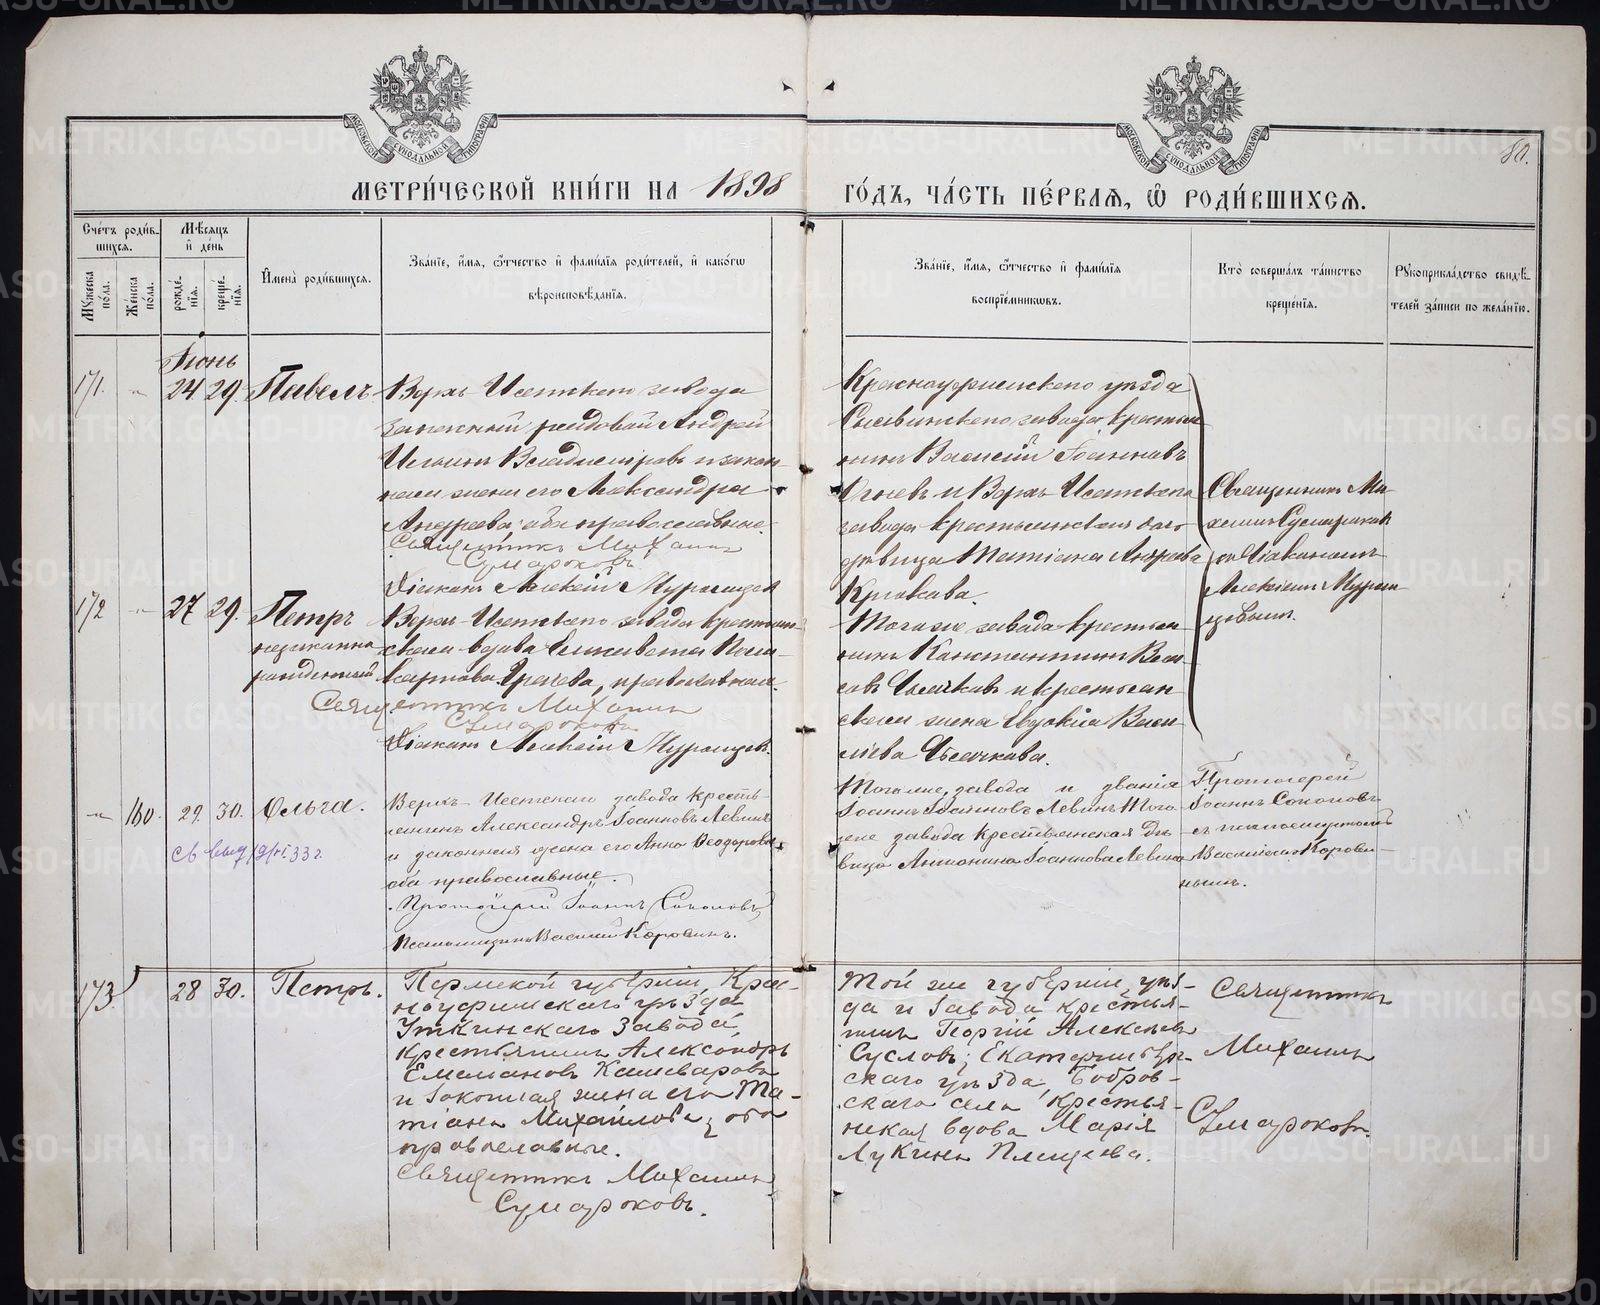 МЕТРИ́ЧЕСКОЙ КНИ́ГИ НА 1898 ГО́ДЪ, ЧА́СТЬ ПЕ́РВАЯ, Ѿ РОДИ́ВШИХСЯ.
80.
Сче́тъ роди́в-
шихся.
Мѣ́сяцъ
и де́нь
Му́жеска по́ла.
Же́нска по́ла.
рожде́-
нїя.
креще́-
нїя.
Имена̀ роди́вшихся.
Зва́нїе, и́мя, ѻ҆́тчество и фами́лїя роди́телей, и како́гѡ
вѣроисповѣ́данїя.
Зва́нїе, и́мя, ѻ҆́тчество и фами́лїя
воспрїе́мниковъ.
Кто̀ соверша́лъ та́инство
креще́нїя.
Рꙋкоприкла́дство свидѣ́-
телей за́писи по жела́нїю.
Іюнь
171. - „ - 24 29. Павелъ
Верхъ Исетскаго завода
запасный рядовой Андрей
Ильинъ и закон-
ная жена его Александра
Андреева, оба православные.
Священникъ Михаилъ
Сумароковъ
Діаконъ Алексій
Красноуфимскаго уѣзда
завода крестья-
нинъ Василій Іоанновъ
и Верхъ Исетскаго
завода крестьянская дочь
дѣвица Татіана Андреева
Крюкова.
Священникъ Ми-
хаилъ Сумароковъ
съ Діакономъ
Алексіемъ
172 - „ - 27 29. Петръ
незаконно
рожденный
Верхъ-Исетскаго завода крестьян-
ская вдова Елисавета Поли-
карпова, православная.
Священникъ Михаилъ
Сумароковъ
Діаконъ Алексій
Того же завода крестья-
нинъ Константинъ Васи-
и крестьян-
ская жена Евдокія Васи-
льева
- „ - 160. 29. 30. Ольга.
Верхъ-Исетскаго завода кресть-
янинъ Александръ Іоанновъ Левинъ
и законная жена его Анна Ѳеодорова,
оба православные.
Протоіерей Іоаннъ Соколовъ
Псаломщикъ Василій Коровинъ.
Того же завода и званія
Іоаннъ Іоанновъ Левинъ и того
же завода крестьянская дѣ-
вица Антонина Іоаннова Левина
Протоіерей
Іоаннъ Соколовъ
съ псаломщикомъ
Василіемъ Корови-
нымъ.
173 28 30. Петръ.
Пермской губерніи, Крас-
ноуфимскаго уѣзда
Уткинскаго завода,
крестьянинъ Александръ
Емельяновъ Кашеваровъ
и законная жена его Та-
тіана Михайлова, оба
православные.
Священникъ Михаилъ
Сумароковъ.
Той же губерніи, уѣз-
да и завода крестья-
нинъ Георгій Алексѣевъ
Сусловъ; Екатеринбург-
скаго уѣзда, Бобров-
скаго села крестья-
нская вдова Марія
Лукина Плещева.
Священникъ
Михаилъ
Сумароковъ.
METRIKI.GASO-URAL.RU